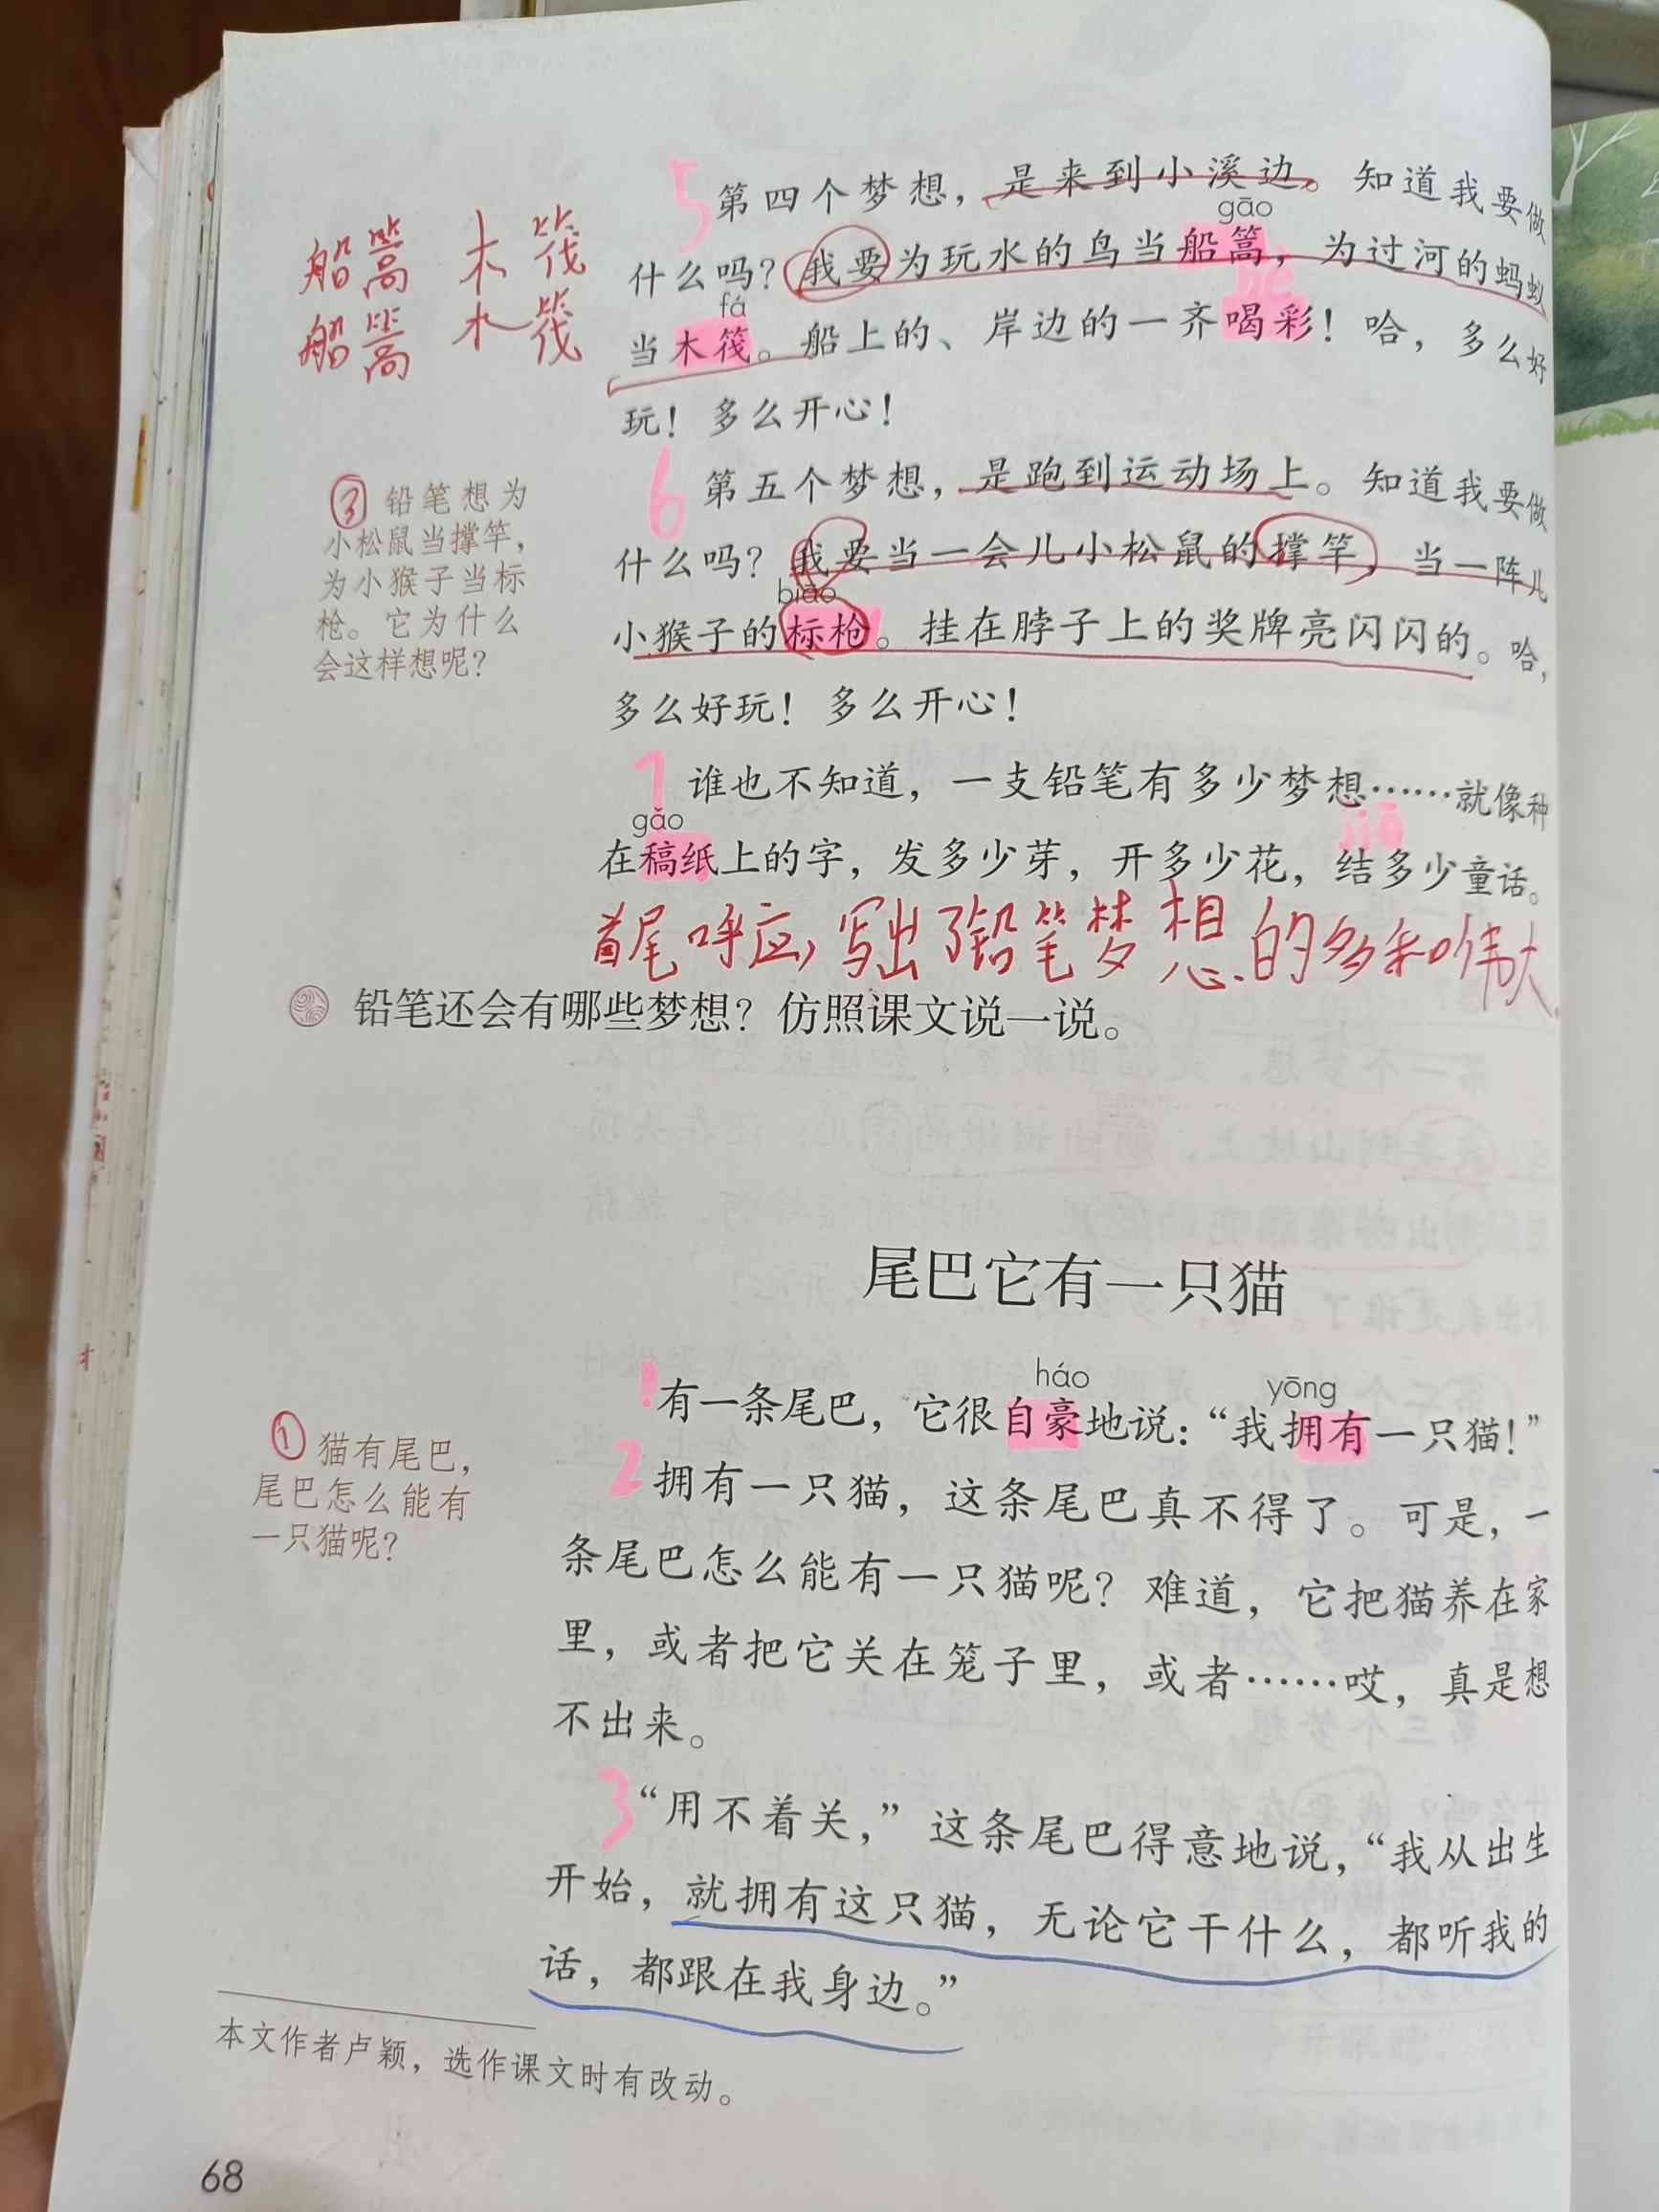 5 第四个梦想，是来到小溪边。知道我要做
gāo
什么吗？我要为玩水的鸟当船篙，为过河的蚂蚁
fá
当木筏。船上的、岸边的一齐喝彩！哈，多么好
玩！多么开心！
船篙 木筏
船篙 木筏
6 第五个梦想，是跑到运动场上。知道我要做
什么吗？我要当一会儿小松鼠的撑竿，当一阵儿
biāo
小猴子的标枪。挂在脖子上的奖牌亮闪闪的。哈，
多么好玩！多么开心！
③ 铅笔想为
小松鼠当撑竿，
为小猴子当标
枪。它为什么
会这样想呢？
7 谁也不知道，一支铅笔有多少梦想……就像种
gǎo
jiē
在稿纸上的字，发多少芽，开多少花，结多少童话。
首尾呼应，写出了铅笔梦想的多和伟大
铅笔还会有哪些梦想？仿照课文说一说。
尾巴它有一只猫
háo yōng
1 有一条尾巴，它很自豪地说：“我拥有一只猫！”
2 拥有一只猫，这条尾巴真不得了。可是，一
条尾巴怎么能有一只猫呢？难道，它把猫养在家
里，或者把它关在笼子里，或者……哎，真是想
不出来。
① 猫有尾巴，
尾巴怎么能有
一只猫呢？
3 “用不着关，”这条尾巴得意地说，“我从出生
开始，就拥有这只猫，无论它干什么，都听我的
话，都跟在我身边。”
本文作者卢颖，选作课文时有改动。
68